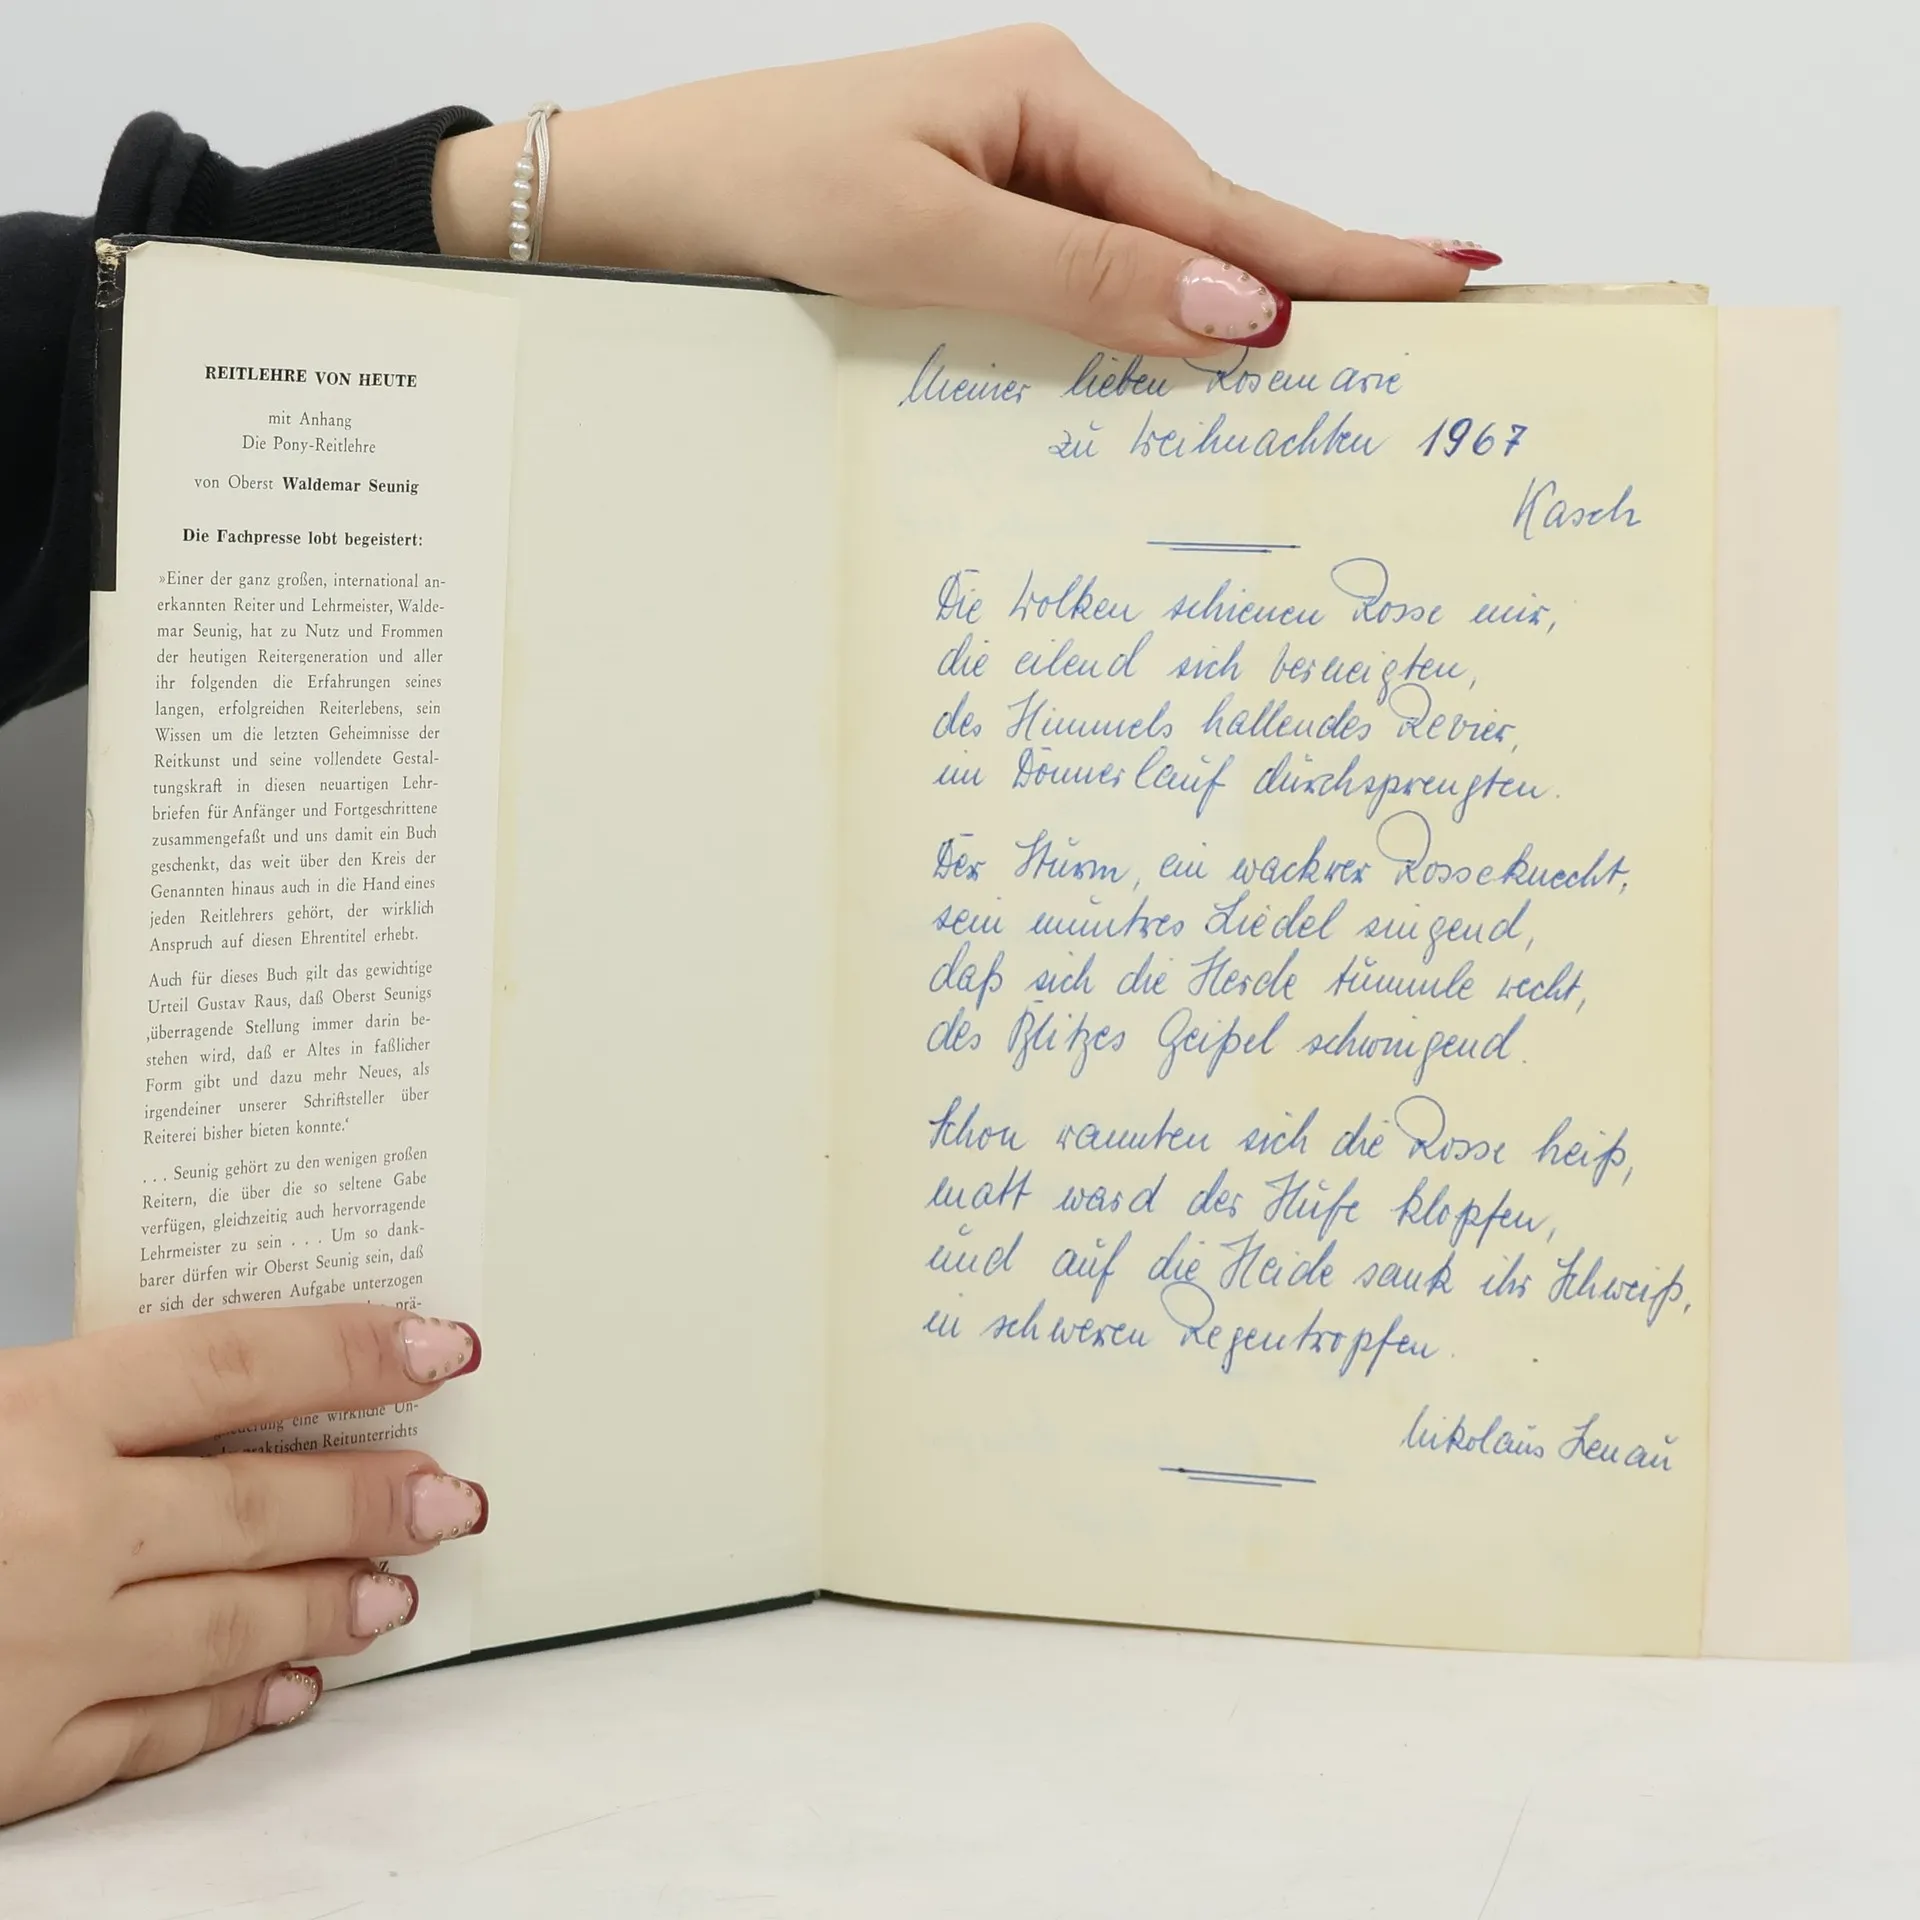 REITLEHRE VON HEUTE
mit Anhang
Die Pony-Reitlehre
von Oberst Waldemar Seunig
Die Fachpresse lobt begeistert:
»Einer der ganz großen, international an-
erkannten Reiter und Lehrmeister, Walde-
mar Seunig, hat zu Nutz und Frommen
der heutigen Reitergeneration und aller
ihr folgenden die Erfahrungen seines
langen, erfolgreichen Reiterlebens, sein
Wissen um die letzten Geheimnisse der
Reitkunst und seine vollendete Gestal-
tungskraft in diesen neuartigen Lehr-
briefen für Anfänger und Fortgeschrittene
zusammengefaßt und uns damit ein Buch
geschenkt, das weit über den Kreis der
Genannten hinaus auch in die Hand eines
jeden Reitlehrers gehört, der wirklich
Anspruch auf diesen Ehrentitel erhebt.
Auch für dieses Buch gilt das gewichtige
Urteil Gustav Raus, daß Oberst Seunigs
‚überragende Stellung immer darin be-
stehen wird, daß er Altes in faßlicher
Form gibt und dazu mehr Neues, als
irgendeiner unserer Schriftsteller über
Reiterei bisher bieten konnte.‘
. . . Seunig gehört zu den wenigen großen
Reitern, die über die so seltene Gabe
verfügen, gleichzeitig auch hervorragende
Lehrmeister zu sein . . . Um so dank-
barer dürfen wir Oberst Seunig sein, daß
er sich der schweren Aufgabe unterzogen
prä-
eine wirkliche Un-
praktischen Reitunterrichts
Meiner lieben Rosemarie
zu Weihnachten 1967
Kasch
Die Wolken schienen Rosse mir,
die eilend sich verneigten,
des Himmels hallendes Revier,
im Donnerlauf durchsprengten.
Der Sturm, ein wackrer Rosseknecht,
sein muntres Liedel singend,
daß sich die Herde tummle recht,
des Blitzes Geißel schwingend.
Schon rannten sich die Rosse heiß,
matt ward der Hufe klopfen,
und auf die Heide sank ihr Schweiß,
in schweren Regentropfen.
Nikolaus Lenau